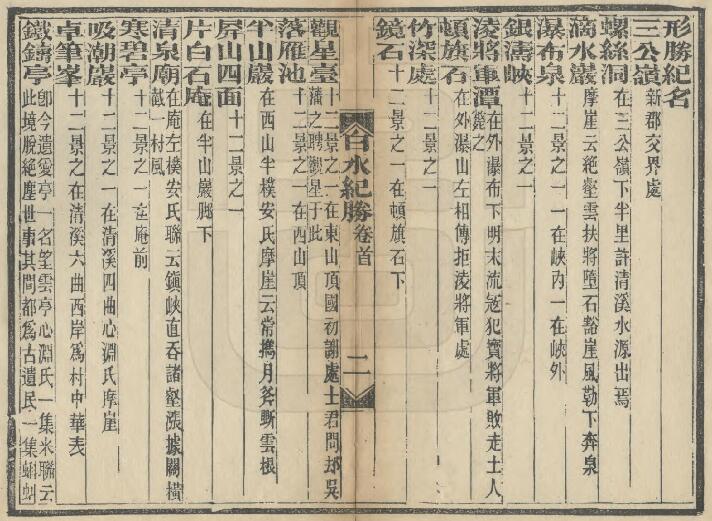 形勝紀名
三公嶺 新郡交界處
螺絲洞 在三公嶺下半里許清溪水源出焉
滴水巖 摩崖云絕壑雲扶將墮石豁崖風勒下奔泉
瀑布泉 十二景之一一在峽內一在峽外
銀濤峽 十二景之一
淩將軍潭 在外瀑布下明末流寇犯竇將軍敗走土人斃之
頓旗石 在外瀑山左相傳拒淩將軍處
竹深處 十二景之一
鏡石 十二景之一在頓旗石下
白水紀勝 卷首 二
觀星臺 十二景之一在東山頂國初謝處士君問却吳藩之聘觀星于此
落雁池 十二景之一在西山頂
半山巖 在西山半樸安氏摩崖云常擕月斧斷雲根
屛山四面 十二景之一
片白石庵 在半山巖脚下
清泉廟 在庵左樸安氏聯云鎭峽直吞諸壑漲據關橫截一村風
寒碧亭 十二景之一在庵前
吸潮巖 十二景之一在清溪四曲心淵氏摩崖
卓筆峯 十二景之在清溪六曲西岸爲村中華表
鐵鑄亭 卽今遺愛亭一名望雲亭心淵氏一集米聯云此境脫絕塵世事其間都爲古遺民一集